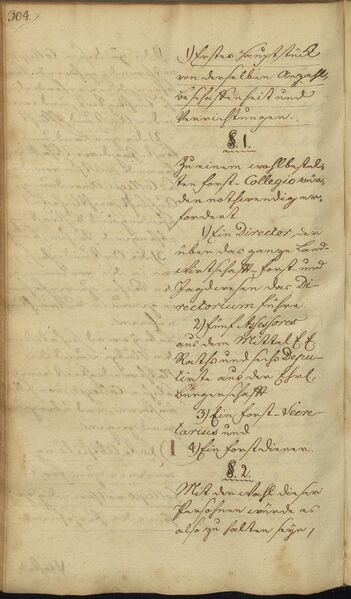 304.
1) Erstes Hauptstück
von derselben Anzahl,
beschaffenheit und
Verrichtungen.
§. 1.
Zu einem wohlbestel-
ten Forst-Collegio wür-
den nothwendig er-
fordert
1) Ein Director, der
über das ganze Land-
wirtschafft-Forst und
Jagdwesen das Di-
rectorium führe.
2) Fünf Assessores
aus dem Mittel E. E.
Raths und sechs Depu-
tirte aus der Ehrl.
bürgerschafft
3) Ein Forst-Secre-
tarius und
4) Ein Forstdiener.
§. 2.
Mit der Wahl dieser
Persohnen würde es
also zu halten seyn,